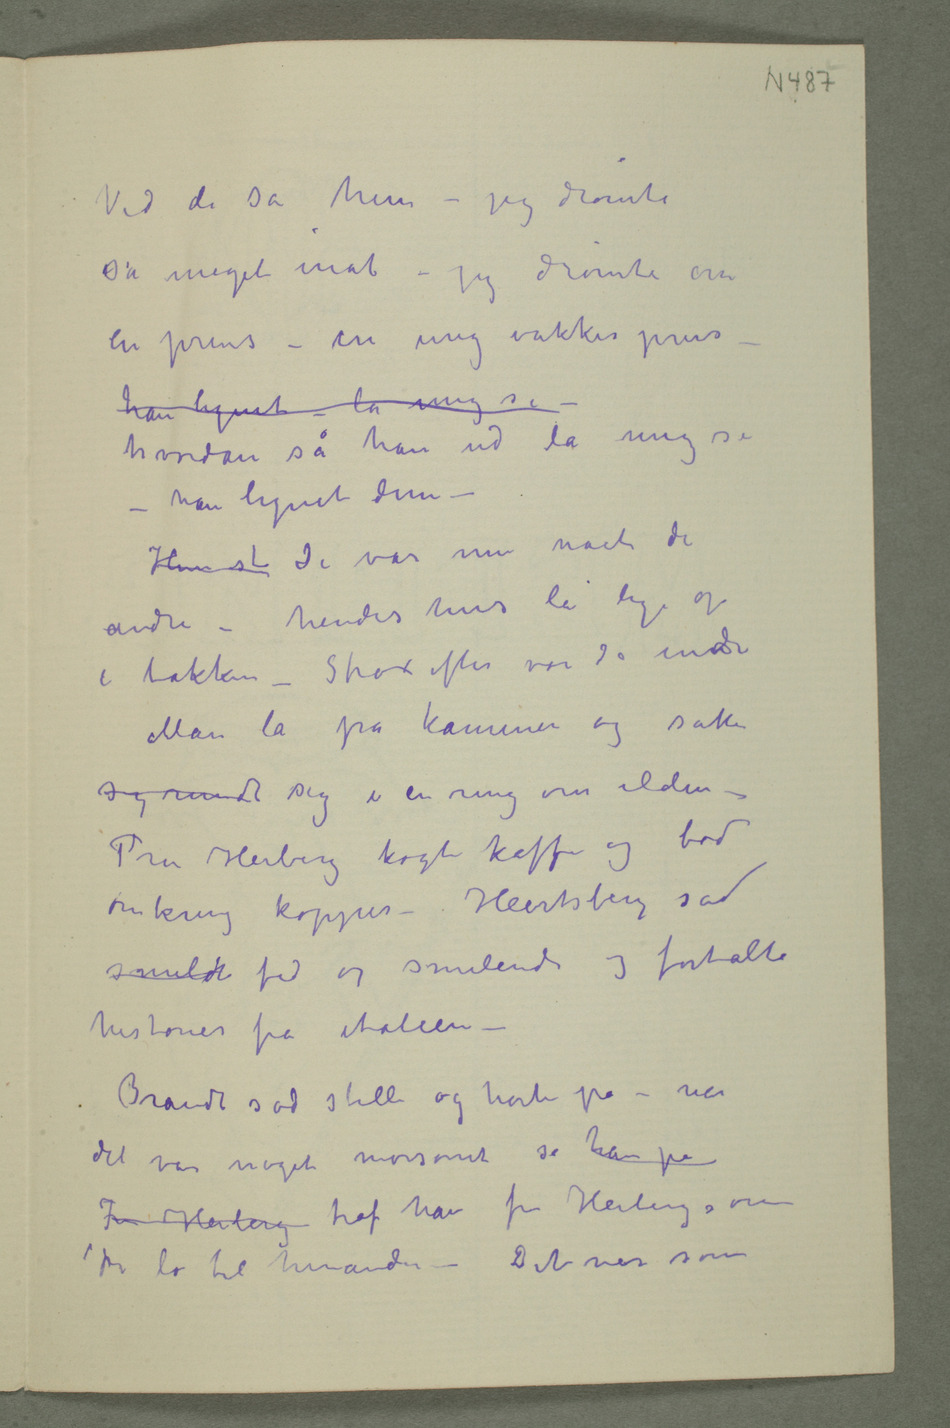 N487
Ved de sa hun – jeg drømte
så meget inat – jeg drømte om
en prins – en ung vakker prins –
han lignet – la mig se –
hvordan så han ud la mig se
– han lignet dem –
Hun st De var nu naet de
andre – hendes hus lå lige op
i bakken – Strax efter var de inde
Man la på kaminen og satte
sig rundt sig i en ring om ilden –
Fru Heiberg kogte kaffe og bød
omkring kopper – Heertsberg sad
smeldt fed og smilende og fortalte
historier fra italien –
Brandt sad stille og hørte på – når
det var noget morsomt så han på
Fru Heiberg traf han fru Heibergs øine
De lo til hinanden – Det var som